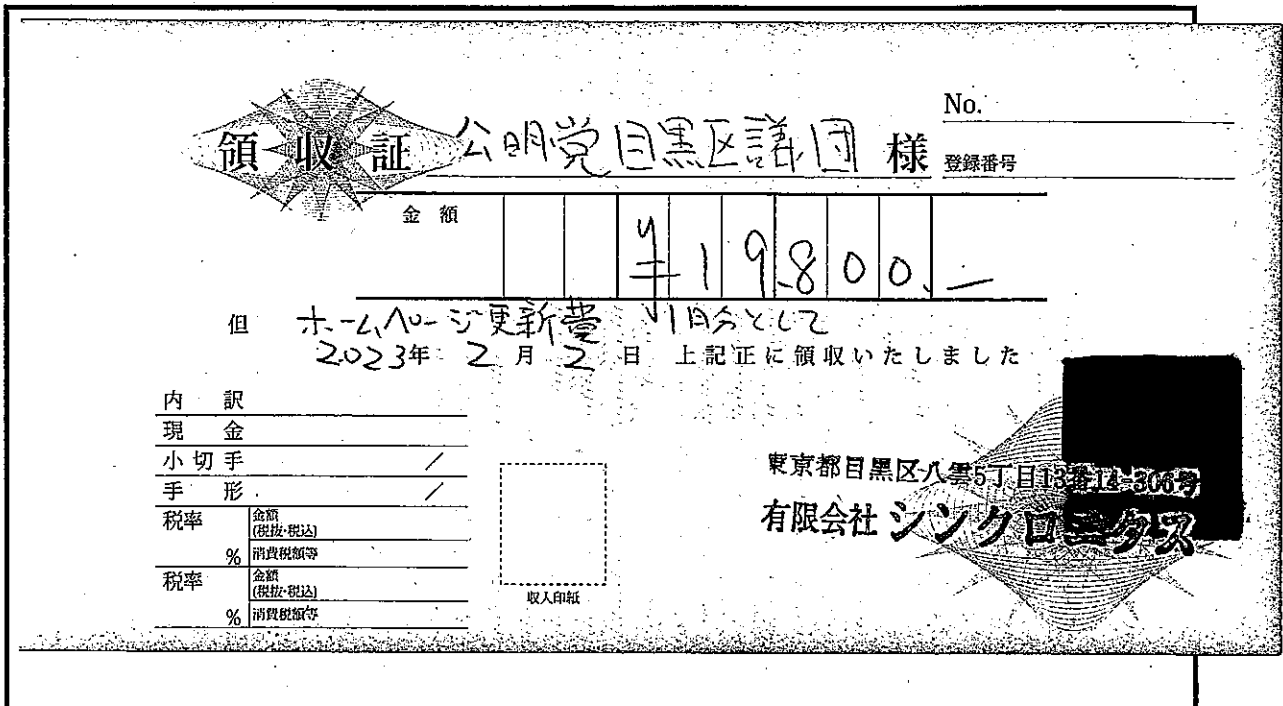 No.
領収証 公明党目黒区議団 様
登録番号
金額 ¥19,800.—
但 ホームページ更新費 1月分として
2023年 2月 2日 上記正に領収いたしました
内 訳
現 金
小切手 /
手 形 /
税率 % 金額(税抜・税込)
消費税額等
税率 % 金額(税抜・税込)
消費税額等
収入印紙
東京都目黒区八雲5丁目13番14-306号
有限会社 シンクロニタス